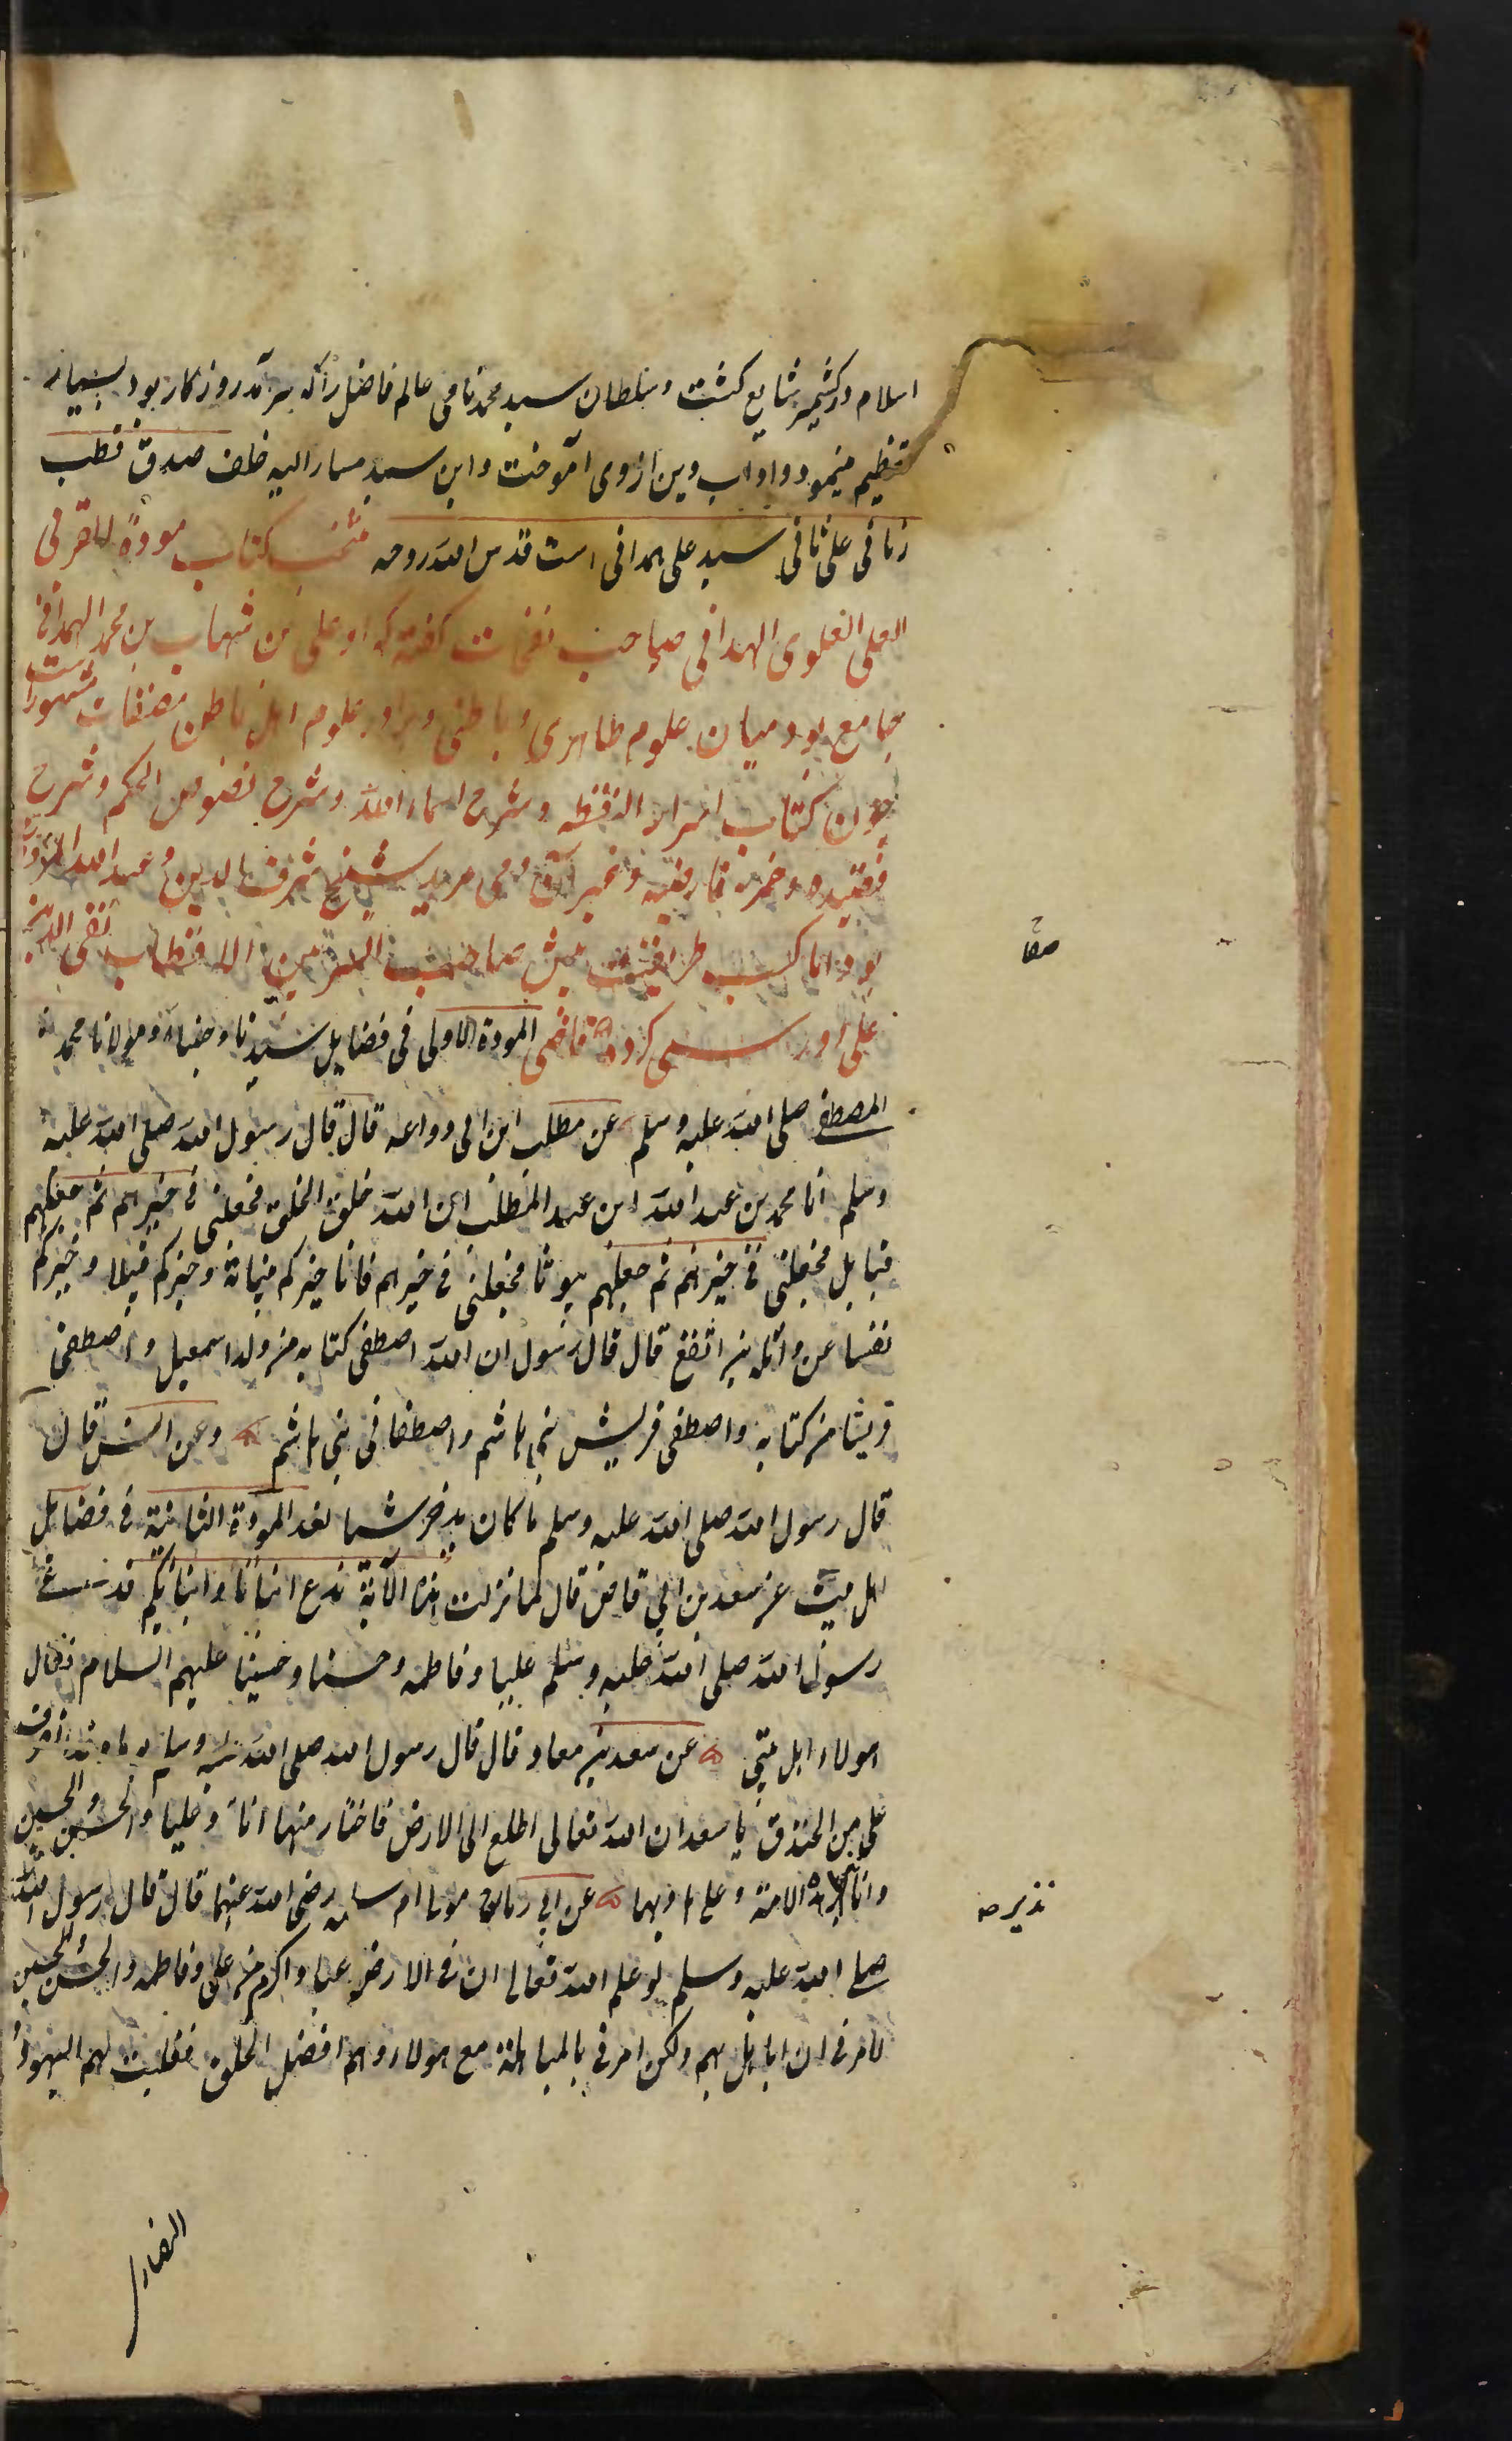 اسلام در کشمیر شایع کشت و سلطان سید محمد نامی عالم فاضل را که سرآمد روزکار بود بسیار
تعظیم مینمود و اداب دین ازوی آموخت و این سید مسار الیه خلف صدق قطب
زمانی علی ثانی سید علی همدانی است قدس الله روحه منتخب کتاب مودة القربی
العلی العلوی الهمدانی صاحب نفحات کفته که او علی بن شهاب بن محمد الهمدانی
جامع بود میان علوم ظاهری و باطنی و برا در علوم اهل باطن مصنفات مشهور است
چون کتاب اسرار النقطه و شرح اسماء الله و شرح نصوص الحکم و شرح
قصیده خمریه فارضیه و غیر آن وی مرید شیخ شرف الدین عبد الله
بود اما کسب طریقت پیش صاحب السر بین الاقطاب تقی الدین
علی کرد المودة الاولی فی فضایل سیدنا و مولانا محمد
المصطفی صلی الله علیه وسلم عن مطلب ابن ابی وواعه قال قال رسول الله صلی الله علیه
وسلم انا محمد بن عبد الله ابن عبد المطلب ان الله خلق الخلق فجعلنی فی خیرهم ثم جعلهم
قبایل فجعلنی فی خیرهم ثم جعلهم بیوتا فجعلنی فی خیرهم فانا خیرکم وخیرکم وخیرکم
نفسا عن واثله بن اتقع قال قال رسول ان الله اصطفی کتابه من ولد اسمعیل واصطفی
قریشا من کتابه واصطفی قریش بنی هاشم واصطفانی بنی هاشم وعن انس قال
قال رسول الله صلی الله علیه وسلم ما کان یدخر شیا لغد المودة الثانیة فی فضایل
اهل بیت عن سعد بن ابی قاص قال لما نزلت هذه الآیة ندع ابنانا وابنائکم
رسول الله صلی الله علیه وسلم علیا وفاطمه وحسنا وحسینا علیهم السلام فقال
هولاء اهل بیتی عن سعد بن معاد قال قال رسول الله صلی الله علیه وسلم
علی من الخندق یا سعد ان الله تعالی اطلع الی الارض فاختار منها انا وعلیا والحسن والحسین
وانا الامة وعلی هادیها عن ابی مولی ام سلمه رضی الله عنهما قال قال رسول الله
نذیر صه
صلی الله علیه وسلم لو علم الله تعالی ان فی الارض عبادا اکرم من علی وفاطمه والحسن والحسین
لامرنی ان اباهل بهم ولکن امرنی بالمباهلة مع هولاء وهم افضل الخلق فغلبت بهم الیهود و
النصار